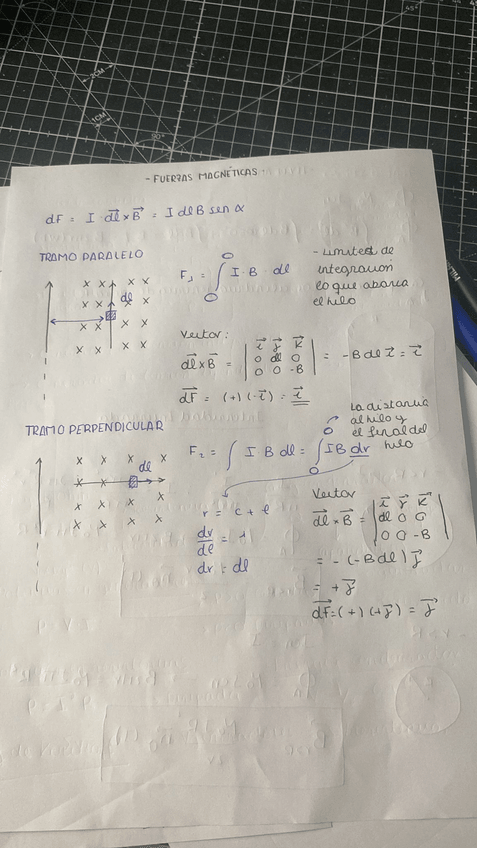 - FUERZAS MAGNÉTICAS:
dF = I · dl⃗ x B⃗ = I dl B sen α
TRAMO PARALELO
x x x x
x x x x
dl
x x x x
x x x x
F₁ = ∫ I · B · dl
- Limites de
integración
lo que abarca
el hilo
Vector:
dl⃗ x B⃗ = | i⃗ j⃗ k⃗ | = - B dl i⃗ = i⃗
0 dl 0
0 0 -B
dF⃗ = (+) (-i⃗) = i⃗
TRAMO PERPENDICULAR
x x x x
dl
x x x
x x x x
x x x x
F₂ = ∫ I B dl = ∫ I B dr
La distancia
al hilo y
el final del
hilo
r = c + l
dr/dl = 1
dr = dl
Vector
dl⃗ x B⃗ = | i⃗ j⃗ k⃗ |
dl 0 0
0 0 -B
= - (-B dl) j⃗
= + j⃗
dF⃗ = (+) (+j⃗) = j⃗